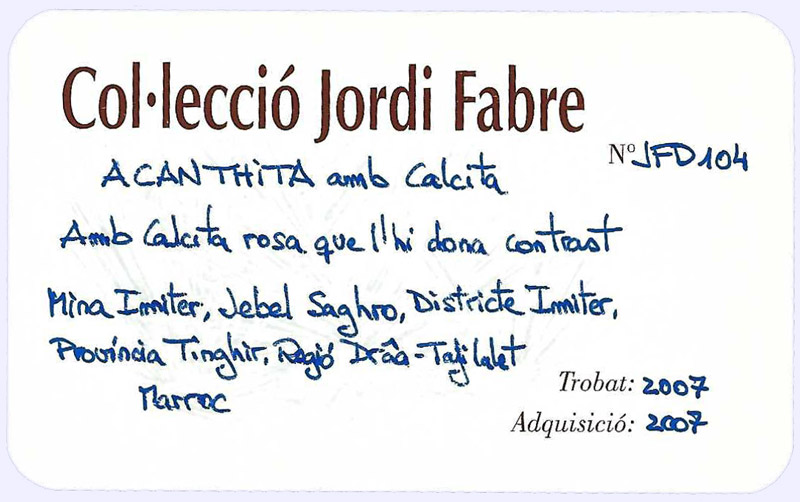 Col·lecció Jordi Fabre
Nº JFD104
ACANTHITA amb Calcita
Amb Calcita rosa que l'hi dona contrast
Mina Imiter, Jebel Saghro, Districte Imiter,
Província Tinghir, Regió Drâa-Tafilalet
Marroc
Trobat: 2007
Adquisició: 2007